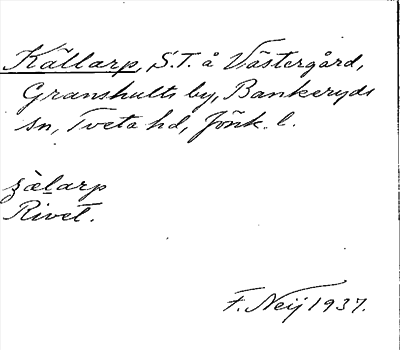 Källarp, S.T. å Västergård,
Granshults by, Bankeryds
sn, Tveta hd, Jönk. l.
ʒ̀ælarp
Rivet.
F. Neij 1937.